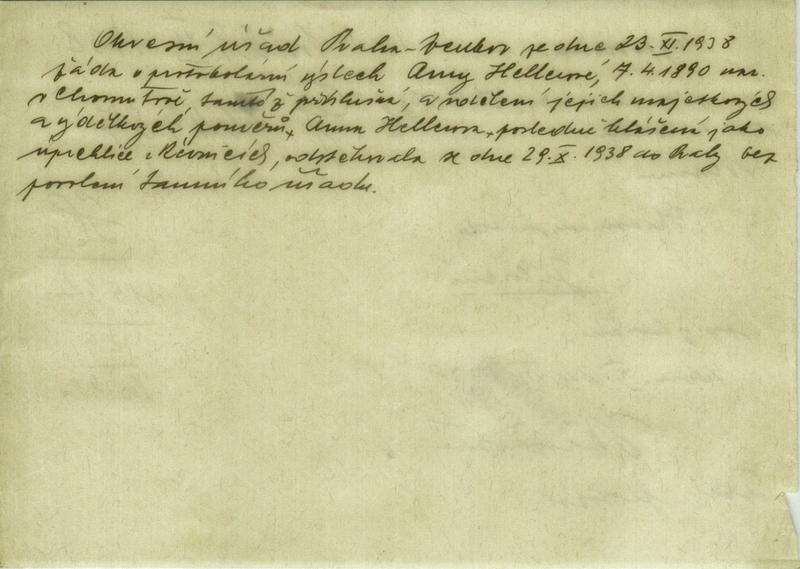 Okresní úřad Praha-venkov ze dne 23. XI. 1938
žádá o protokolární výslech Anny Hellerové, 7.4.1890 nar.
v Chomutově, tamtéž příslušná, a sdělení jejich majetkových
a výdělkových poměrů. Anna Hellerova, posledně hlášená jako
uprchlice v Řevnicích, odstěhovala se dne 29. X. 1938 do Prahy bez
povolení tamního úřadu.